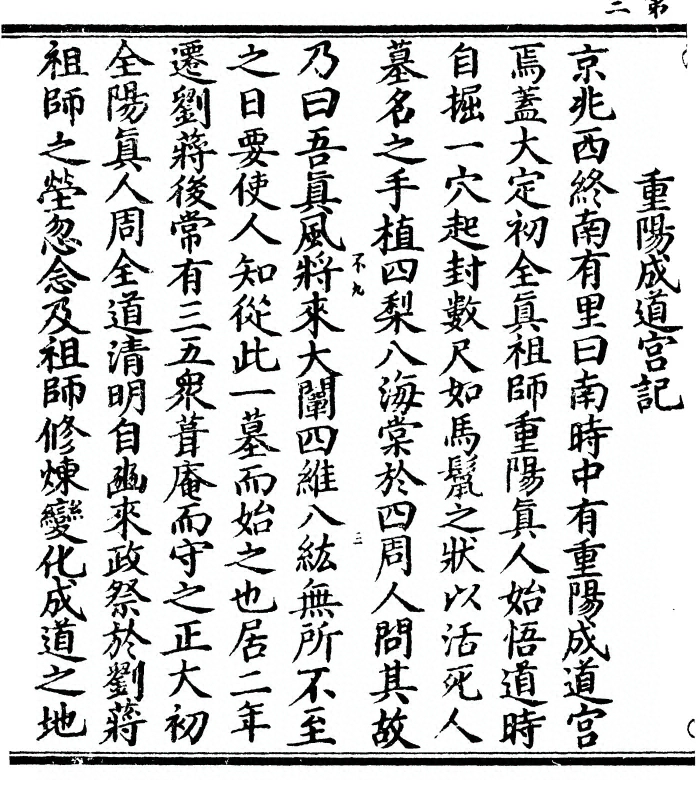 第二
重陽成道宮記
京兆西終南有里曰南時中有重陽成道宮
焉蓋大定初全眞祖師重陽眞人始悟道時
自掘一穴起封數尺如馬鬛之狀以活死人
墓名之手植四梨八海棠於四周人問其故
不九
三
乃曰吾眞風將來大闡四維八紘無所不至
之日要使人知從此一墓而始之也居二年
遷劉蔣後常有三五衆葺庵而守之正大初
全陽眞人周全道清明自豳來政祭於劉蔣
祖師之塋忽念及祖師修煉變化成道之地